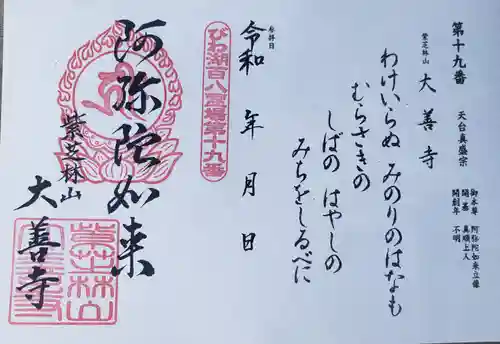 第十九番 天台真盛宗
御本尊 阿弥陀如来立像
開基 真順上人
開創年 不明
紫芝林山 大善寺
わけいらぬ みのりのはなも
むらさきの
しばの はやしの
みちをしるべに
参拝日
令和 年 月 日
びわ湖百八霊場第十九番
阿弥陀如来
紫芝林山
大善寺